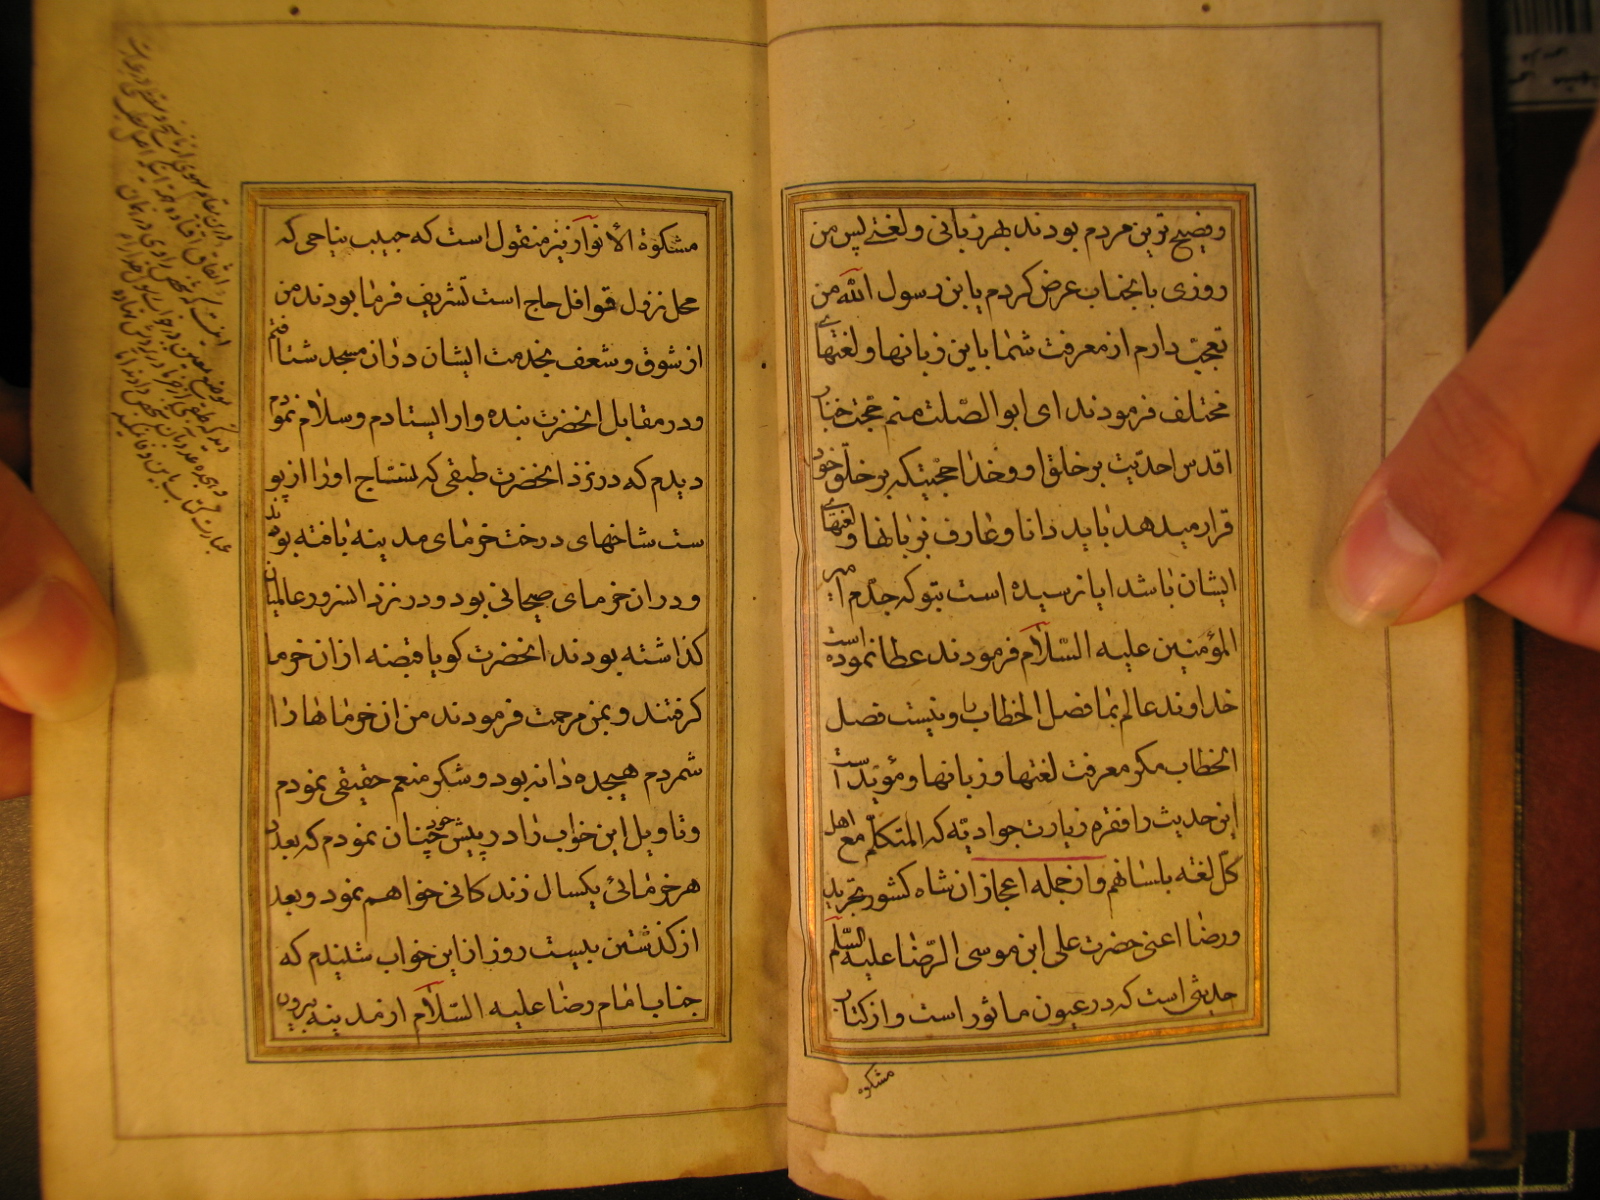 وفصیح ترین مردم بودند بهر زبانی و لغتی پس من
روزی بانجناب عرض کردم یابن رسول الله من
تعجب دارم از معرفت شما باین زبانها و لغتهای
مختلف فرمودند ای ابو الصلت منم حجت جناب
اقدس احدیت بر خلق او و خدا حجتیکه بر خلق خود
قرار میدهد باید دانا و عارف بزبانها و لغتهای
ایشان باشد ایا نرسیده است بتو که جدم امیر
المؤمنین علیه السلام فرمودند عطا نموده است
خداوند عالم بما فصل الخطاب و نیست فصل
الخطاب مکر معرفت لغتها و زبانها و مؤید است
این حدیث را فقره زیارت جوادیه که المتکلم مع اهل
کل لغته بلسانهم و از جمله اعجاز ان شاه کشور تجرید
ورضا اعنی حضرت علی ابن موسی الرضا علیه السلام
حدیثی است که در عیون ماثور است و از کتاب
مشکوه
مشکوة الأنوار نیز منقول است که حبیب بناجی که
محل نزول قوافل حاج است تشریف فرما بودند من
از شوق و شعف بخدمت ایشان دران مسجد شتافتم
و در مقابل انحضرت بنده وار ایستادم و سلام نمودم
دیدم که در نزد انحضرت طبقی که نساج اورا از پو
ست شاخهای درخت خرمای مدینه بافته بودند
و دران خرمای صیحانی بود و در نزد انسرور عالمیان
کذاشته بودند انحضرت کویا قبضه ازان خرما
کرفتند و بمن مرحمت فرمودند من ان خرماها را
شمردم هیجده دانه بود و شکر منعم حقیقی نمودم
و تاویل این خواب را در پیش خود چنان نمودم که بعدد
هر خرمائی یکسال زندکانی خواهم نمود و بعد
از کذشتن بیست روز از این خواب شنیدم که
جناب امام رضا علیه السلام از مدینه بیرون